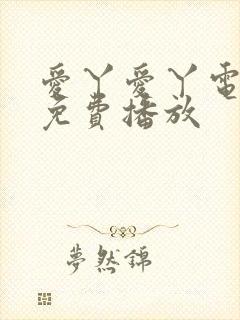 愛丫愛丫電
免費播放
夢然錦